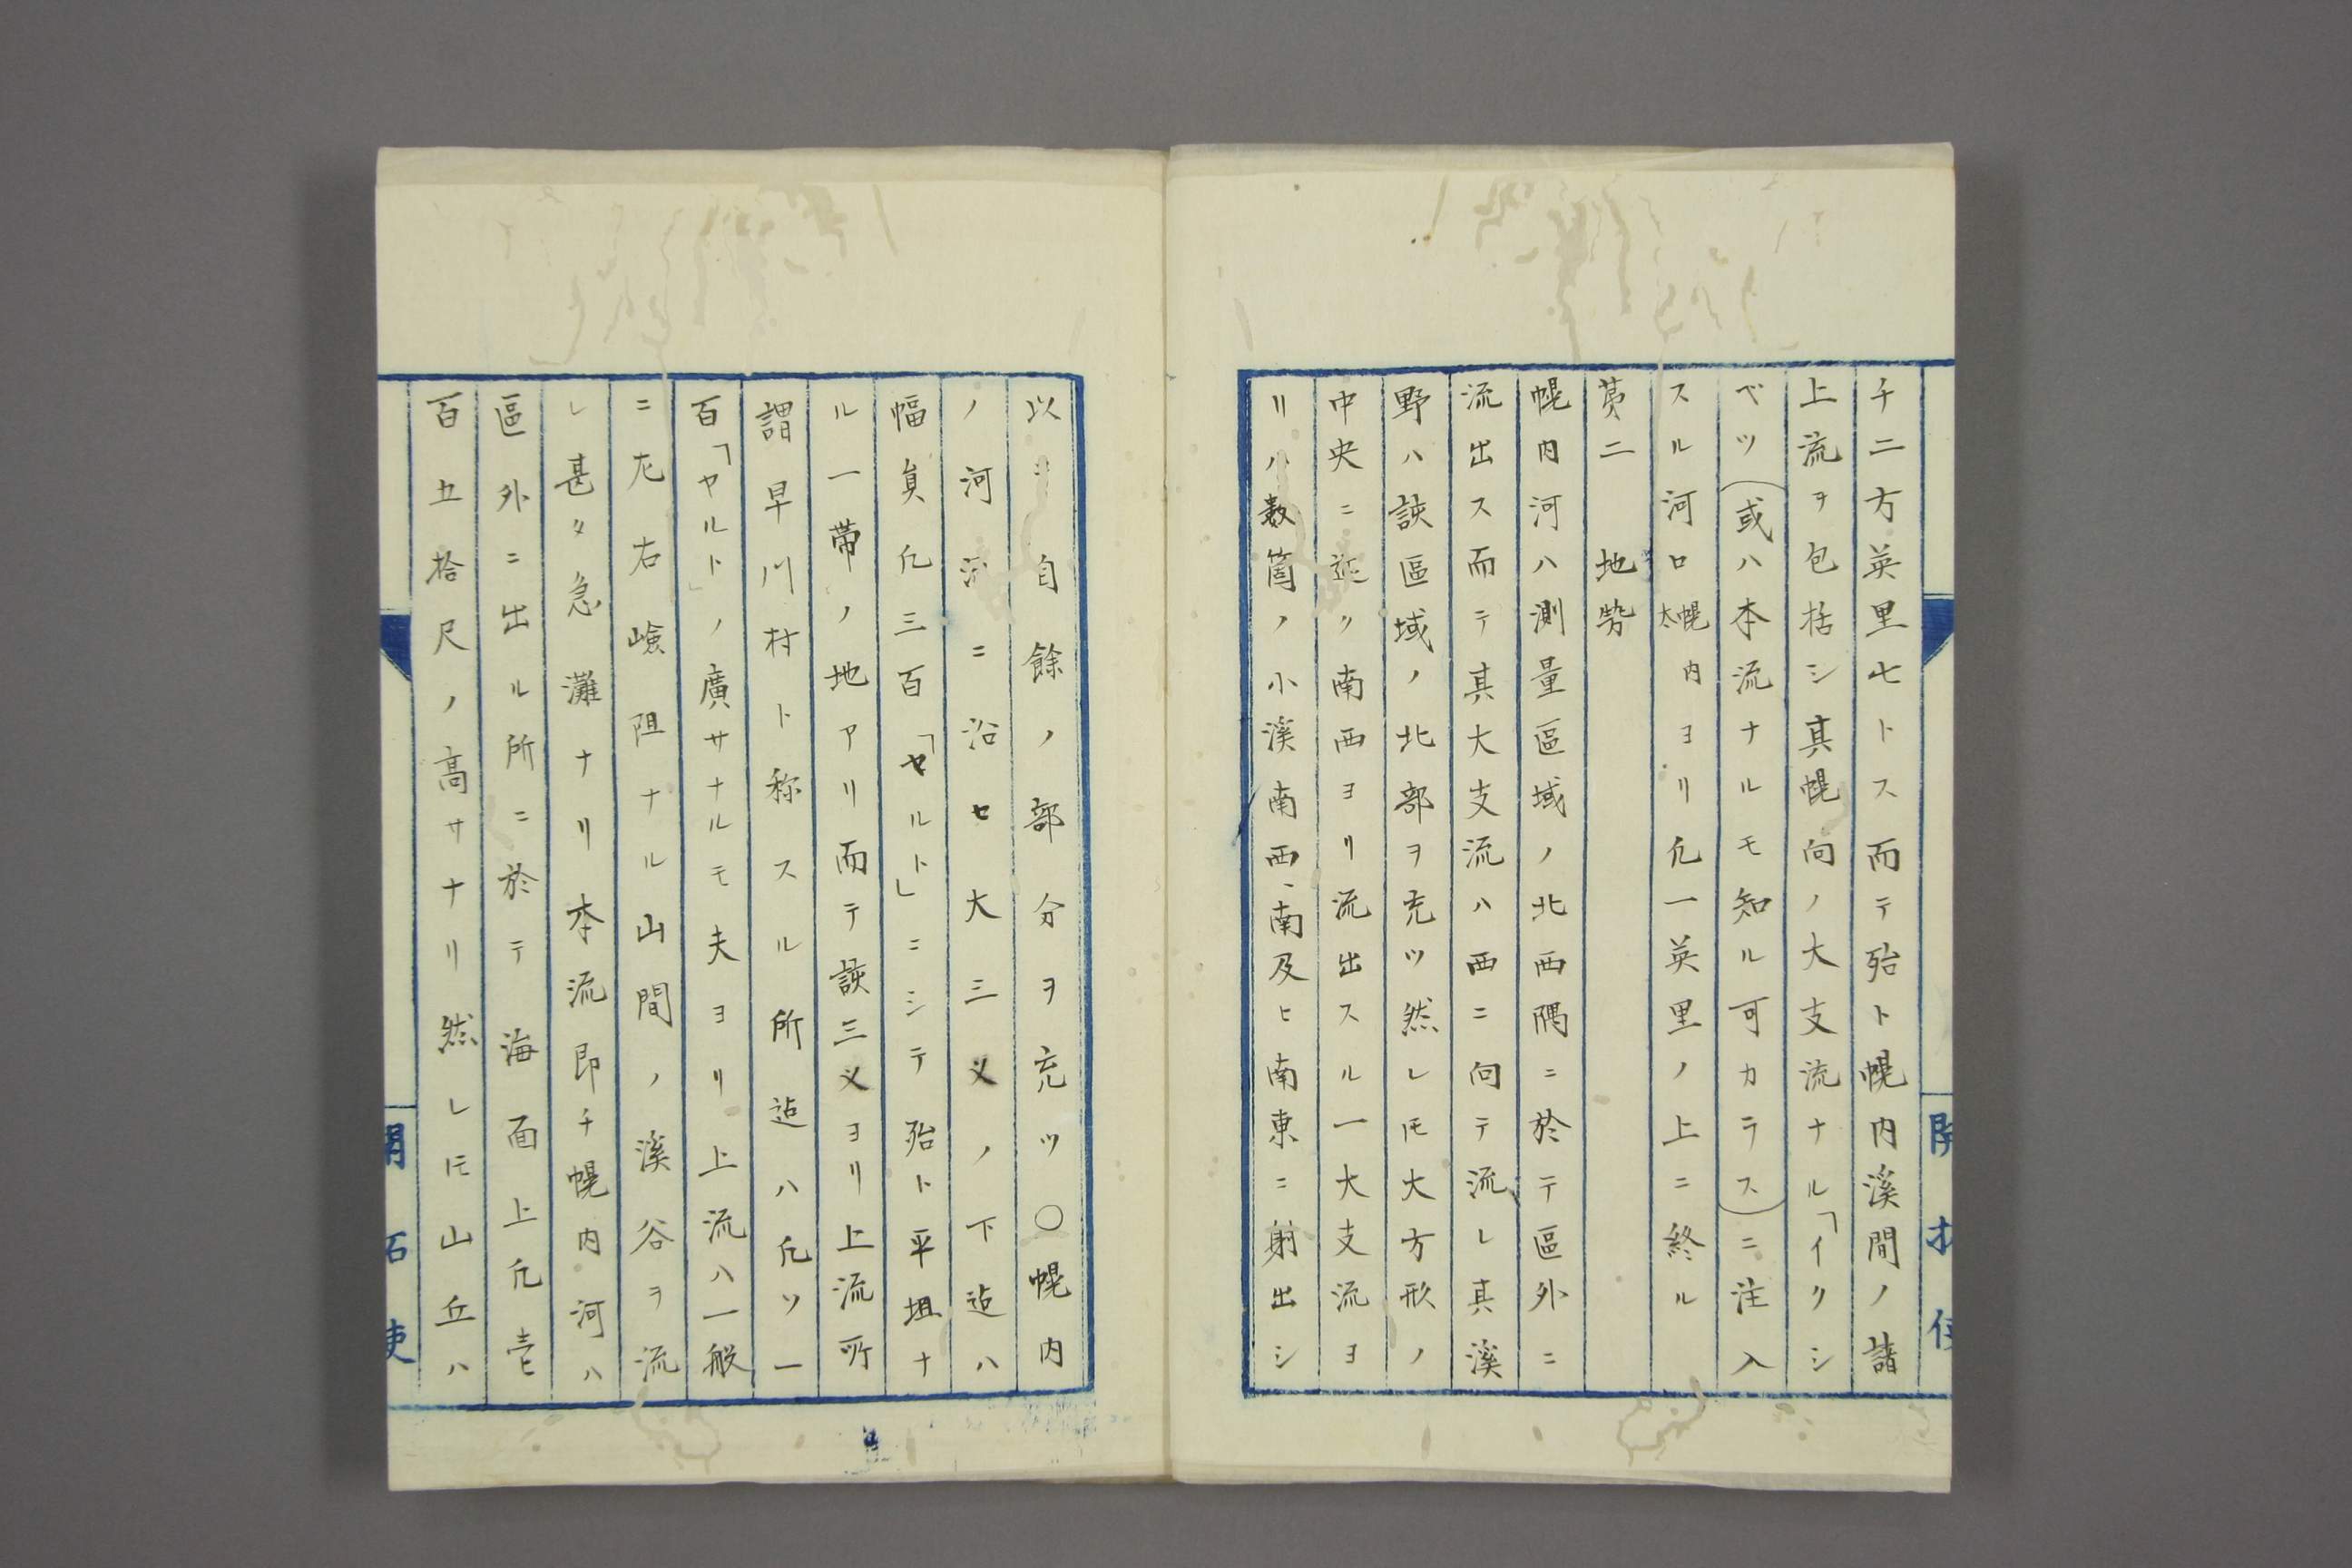 チ二方英里七トス而テ殆ト幌内溪間ノ諸
上流ヲ包括シ真幌向ノ大支流ナル「イクシ
ベツ（或ハ本流ナルモ知ル可カラス）ニ注入
スル河口幌内太ヨリ凢一英里ノ上ニ終ル
苐二　地勢
幌内河ハ測量區域ノ北西隅ニ於テ區外ニ
流出ス而テ其大支流ハ西ニ向テ流レ其溪
野ハ該區域ノ北部ヲ充ツ然レ𪜈大方形ノ
中央ニ近ク南西ヨリ流出スル一大支流ヨ
リハ数箇ノ小溪南西、南及ヒ南東ニ射出シ
以テ自餘ノ部分ヲ充ツ○幌内
ノ河流ニ沿セ大三义ノ下迠ハ
幅員凢三百「ヤルト」ニシテ殆ト平坦ナ
ル一帯ノ地アリ而テ該三义ヨリ上流所
謂早川村ト称スル所迠ハ凢ソ一
百「ヤルト」ノ廣サナルモ夫ヨリ上流ハ一般
ニ左右嶮阻ナル山間ノ溪谷ヲ流
レ甚タ急灘ナリ本流即チ幌内河ハ
區外ニ出ル所ニ於テ海面上凢壱
百五拾尺ノ高サナリ然レ𪜈山丘ハ
開拓使
開拓使